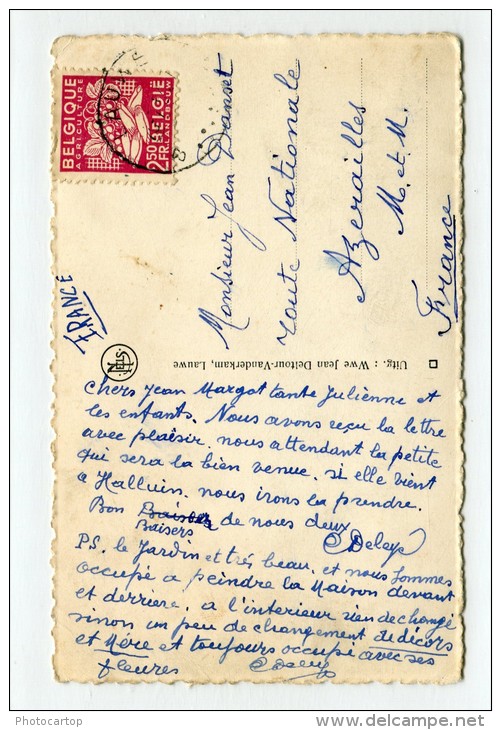 BELGIQUE
AGRICULTURE
2.50 FR
BELGIË
LANDBOUW
FRANCE
Monsieur Jean Danset
route Nationale
Azerailles
M. et M.
France
NELS
Uitg. : Wwe Jean Deltour-Vanderkam, Lauwe
chers Jean Margot tante Julienne et
les enfants. Nous avons reçu la lettre
avec plaisir, nous attendant la petite
qui sera la bien venue, si elle vient
a Halluin, nous irons la prendre.
Bon Baiser de nous deux
Baisers
P.S. le Jardin et très beau, et nous sommes
occupé a peindre la Maison devant
et derriere, a l'interieur rien de changé
sinon un peu de changement de décors
et Mère et toujours occupé avec ses
fleures
Photocartop
http://www.delcampe.net